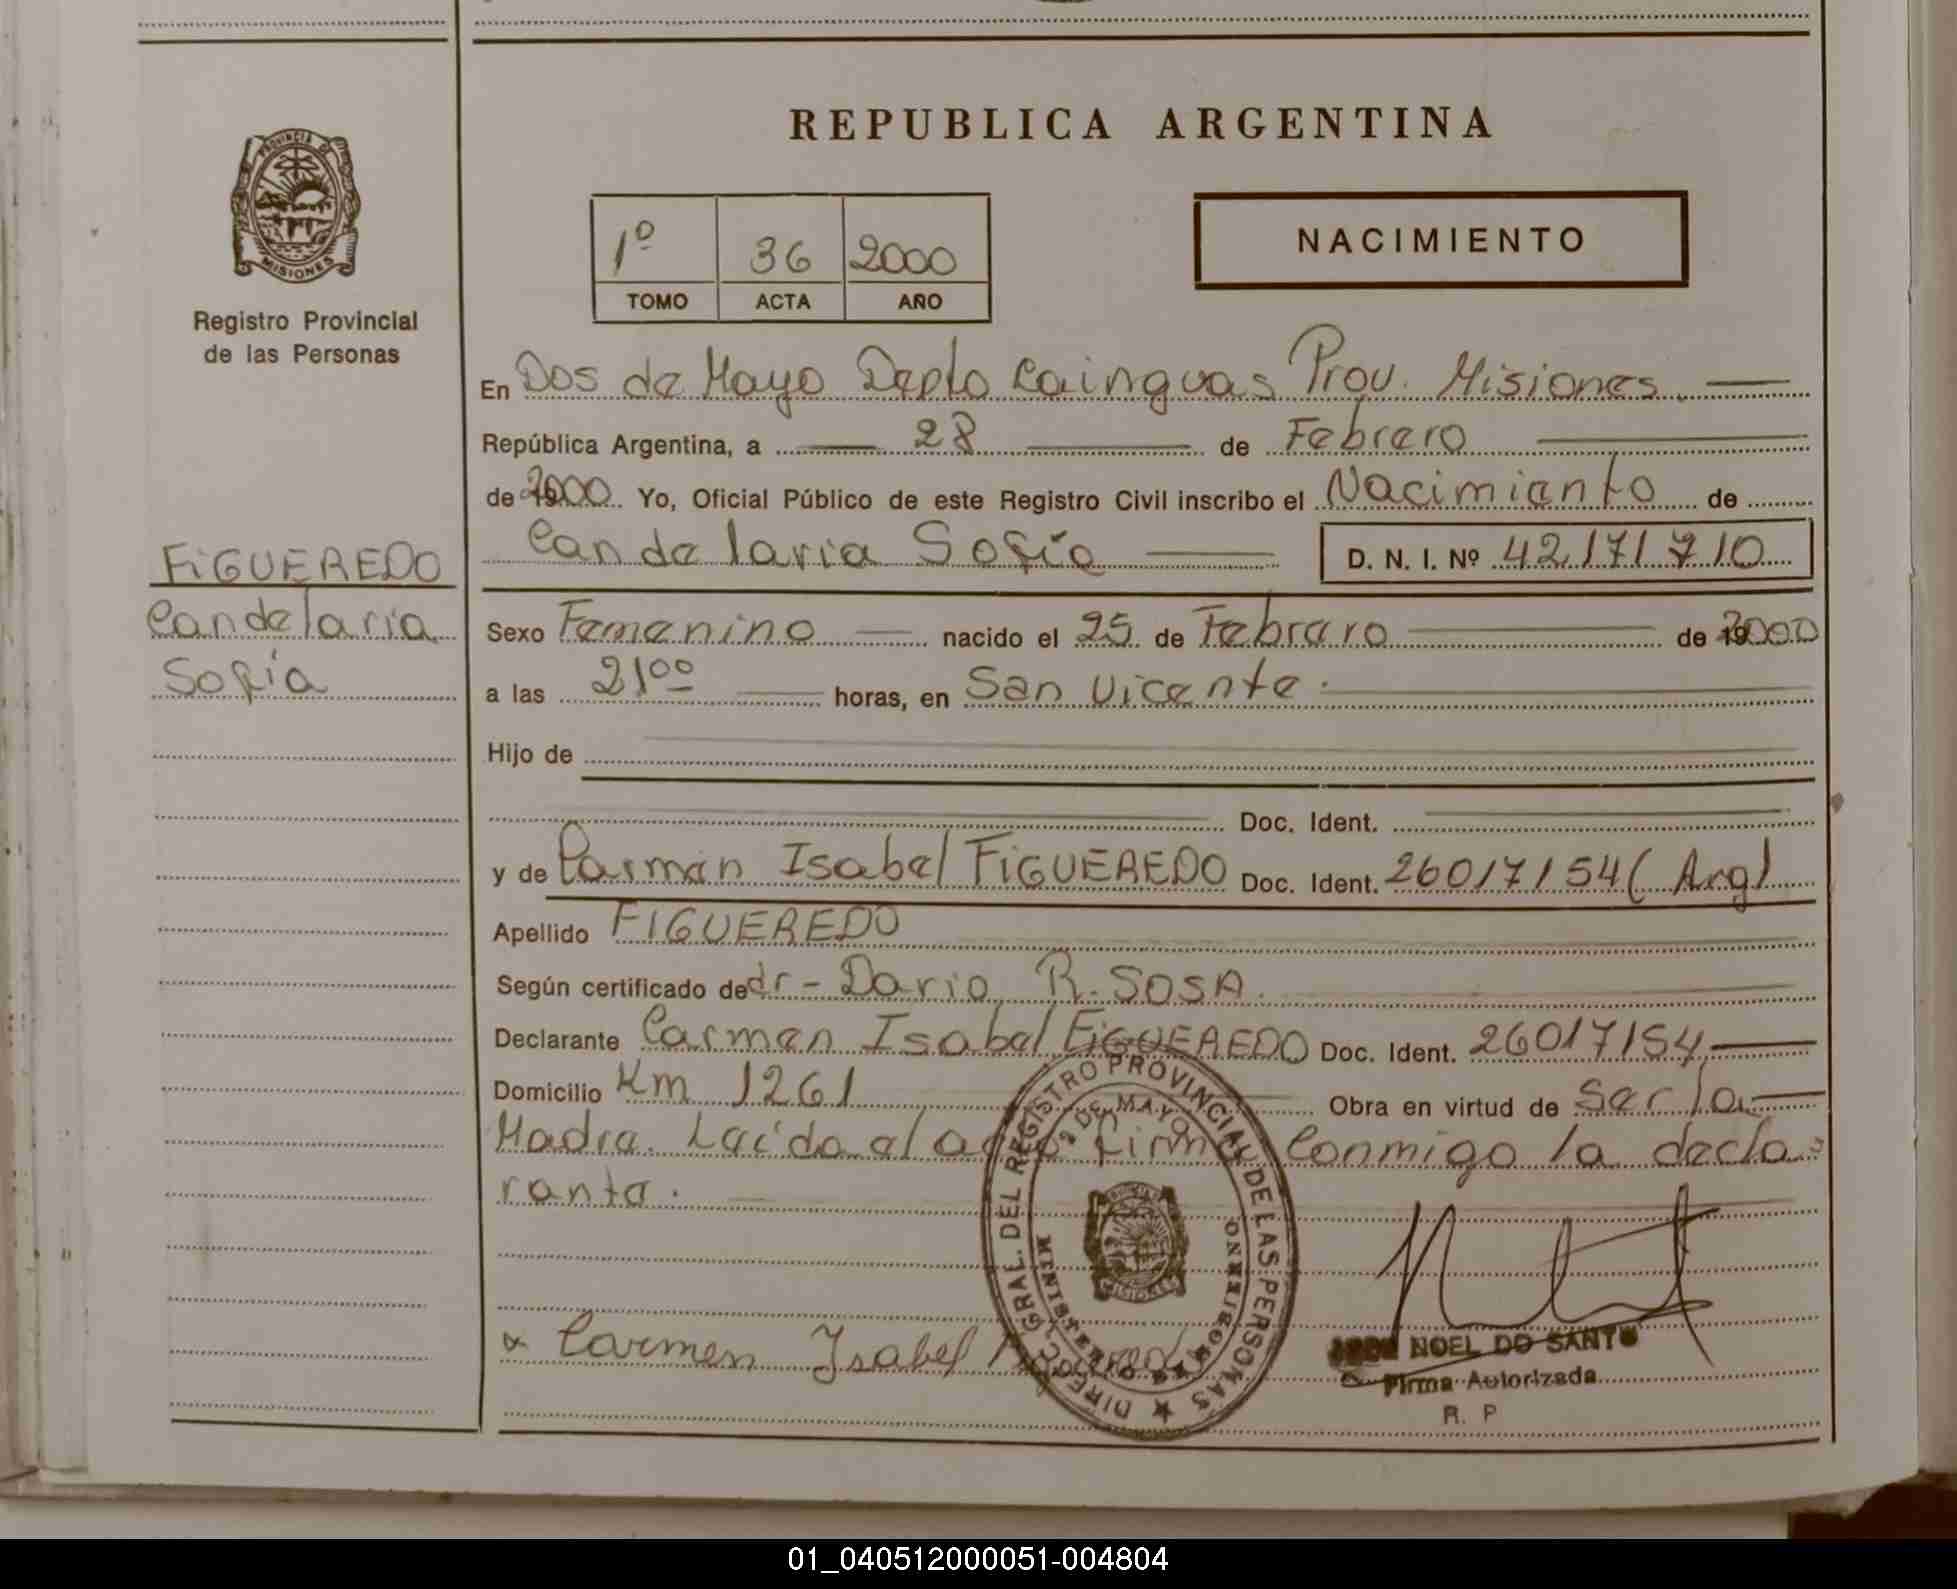 PROVINCIA DE
MISIONES
Registro Provincial
de las Personas
FIGUEREDO
Candelaria
Sofía
REPUBLICA ARGENTINA
1º 36 2000
TOMO ACTA AÑO
NACIMIENTO
En Dos de Mayo Depto Cainguas Prov. Misiones
República Argentina, a 28 de Febrero
de 2000 Yo, Oficial Público de este Registro Civil inscribo el Nacimiento de
Candelaria Sofía D. N. I. Nº 42171710
Sexo Femenino nacido el 25 de Febrero de 2000
a las 21ºº horas, en San Vicente.
Hijo de
Doc. Ident.
y de Carmen Isabel FIGUEREDO Doc. Ident. 26017154 (Arg)
Apellido FIGUEREDO
Según certificado de dr - Dario R. SOSA.
Declarante Carmen Isabel FIGUEREDO Doc. Ident. 26017154
Domicilio Km 1261 Obra en virtud de Ser la
Madre. Leída el acta firma Conmigo la decla-
rante.
DIREC. GRAL. DEL REGISTRO PROVINCIAL DE LAS PERSONAS
2 DE MAYO
MINISTERIO DE GOBIERNO
MISIONES
x Carmen Isabel Figueredo
NOEL DO SANTO
Firma Autorizada
R. P
01_040512000051-004804